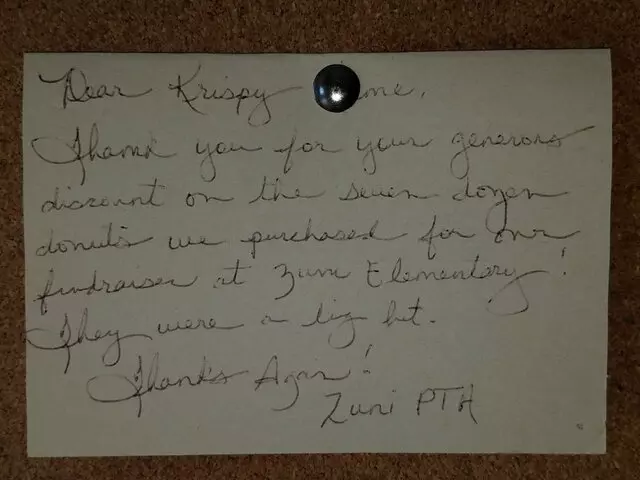 Dear Krispy me,
Thank you for your generous
discount on the seven dozen
donuts we purchased for our
fundraiser at Zuni Elementary!
They were a big hit.
Thanks Again!
Zuni PTA